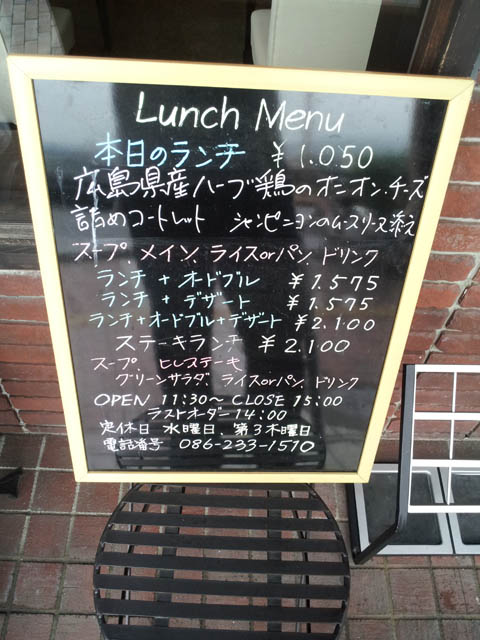 Lunch Menu
本日のランチ ¥1.050
広島県産ハーブ鶏のオニオン.チーズ
詰めコートレット シャンピニヨンのムースリーヌ添え
スープ、メイン、ライスorパン、ドリンク
ランチ + オードブル ¥1.575
ランチ + デザート ¥1.575
ランチ+オードブル+デザート ¥2.100
ステーキランチ ¥2.100
スープ、ヒレステーキ
グリーンサラダ、ライスorパン、ドリンク
OPEN 11:30〜CLOSE 15:00
ラストオーダー 14:00
定休日 水曜日、第3木曜日
電話番号 086-233-1570